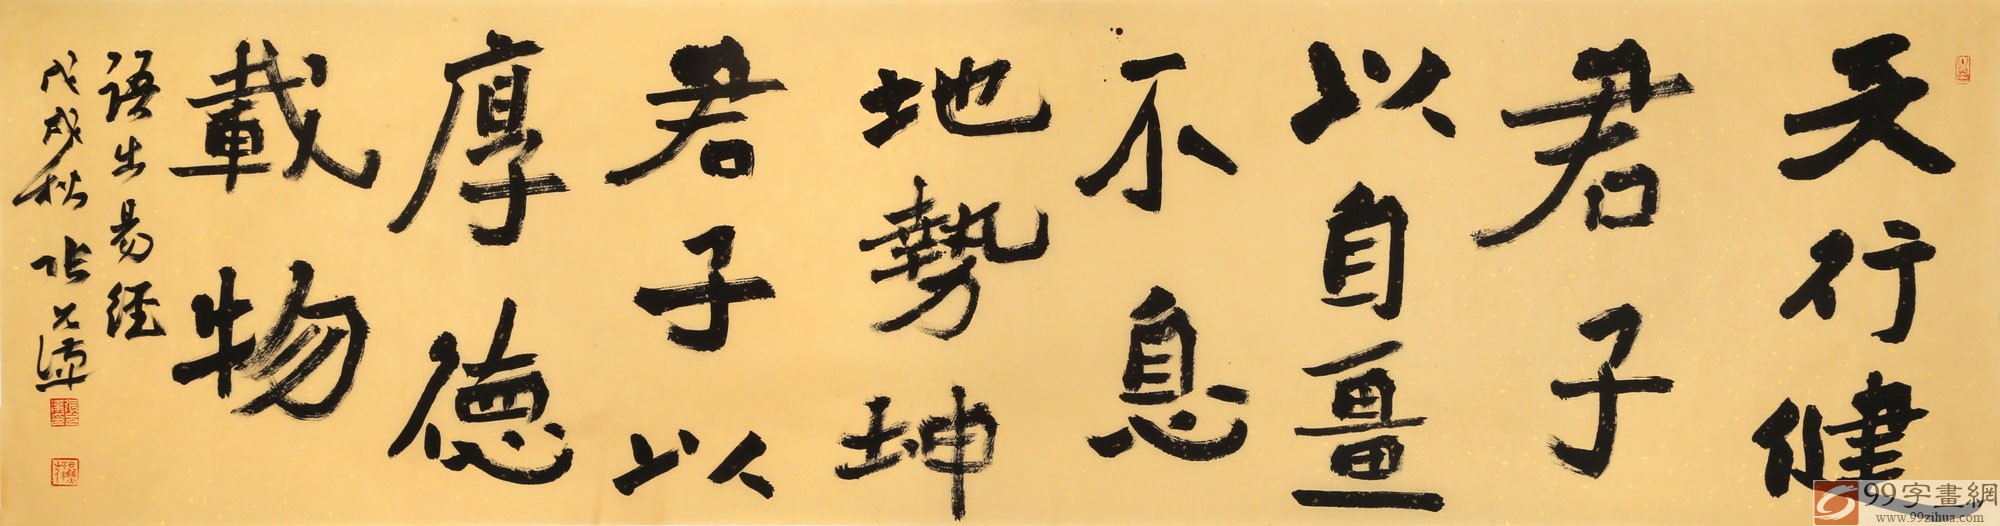 天行健
君子
以自畺
不息
地勢坤
君子以
厚德
載物
語出易經
戊戌秋 张公漳
99字畫網
www.99zihua.com